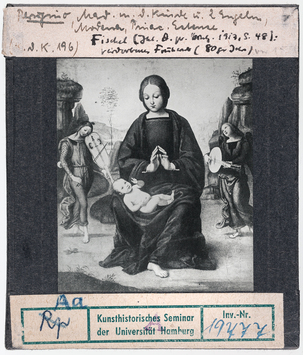 Perugino Mad. m. d. Kinde u. 2 Engeln,
Modena, Pinac. Estense.
Fischel (Jhb. d. pr. Kstg. 1917, S. 48):
(80er Jhr.)
D. K. 196)
Aa
Rp
Kunsthistorisches Seminar
der Universität Hamburg
Inv.-Nr.